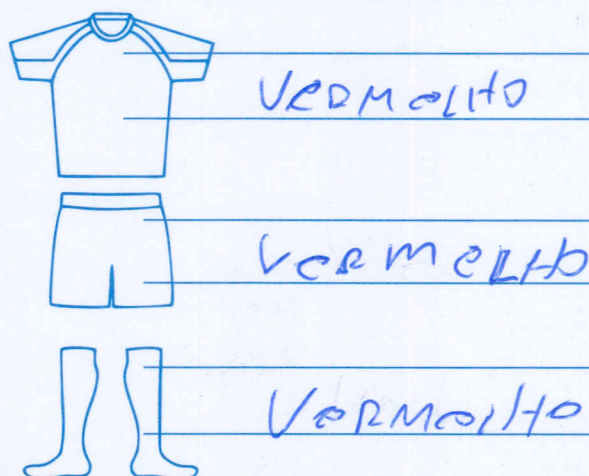 VERMELHO
VERMELHO
VERMELHO